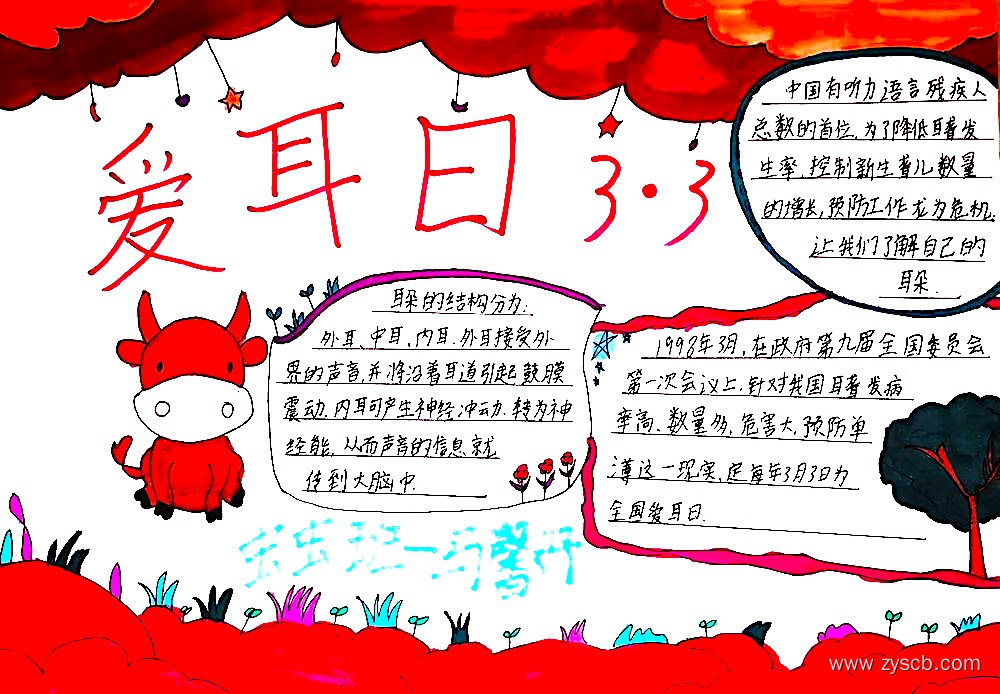 爱耳日 3·3
中国有听力语言残疾人
总数的首位,为了降低耳聋发
生率,控制新生聋儿数量
的增长,预防工作尤为危机,
让我们了解自己的
耳朵.
耳朵的结构分为:
外耳、中耳、内耳.外耳接受外
界的声音,并将沿着耳道引起鼓膜
震动.内耳可产生神经冲动.转为神
经能,从而声音的信息就
传到大脑中.
1998年3月,在政府第九届全国委员会
第一次会议上,针对我国耳聋发病
率高、数量多,危害大,预防单
薄这一现实,定每年3月3日为
全国爱耳日.
班一马馨
www.zyscb.com